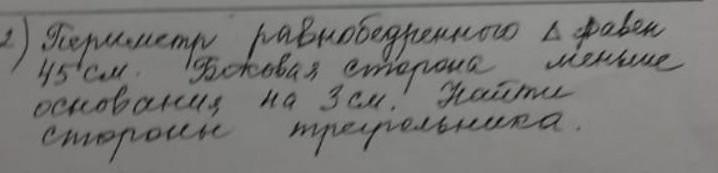 2) Периметр равнобедренного Δ равен
45 см. Боковая сторона меньше
основания на 3 см. Найти
стороны треугольника.